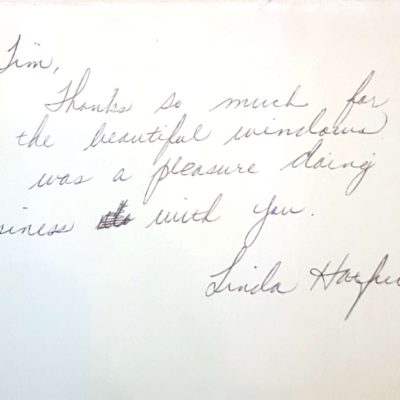 Tim,
Thanks so much for
the beautiful windows
was a pleasure doing
siness with you.
Linda